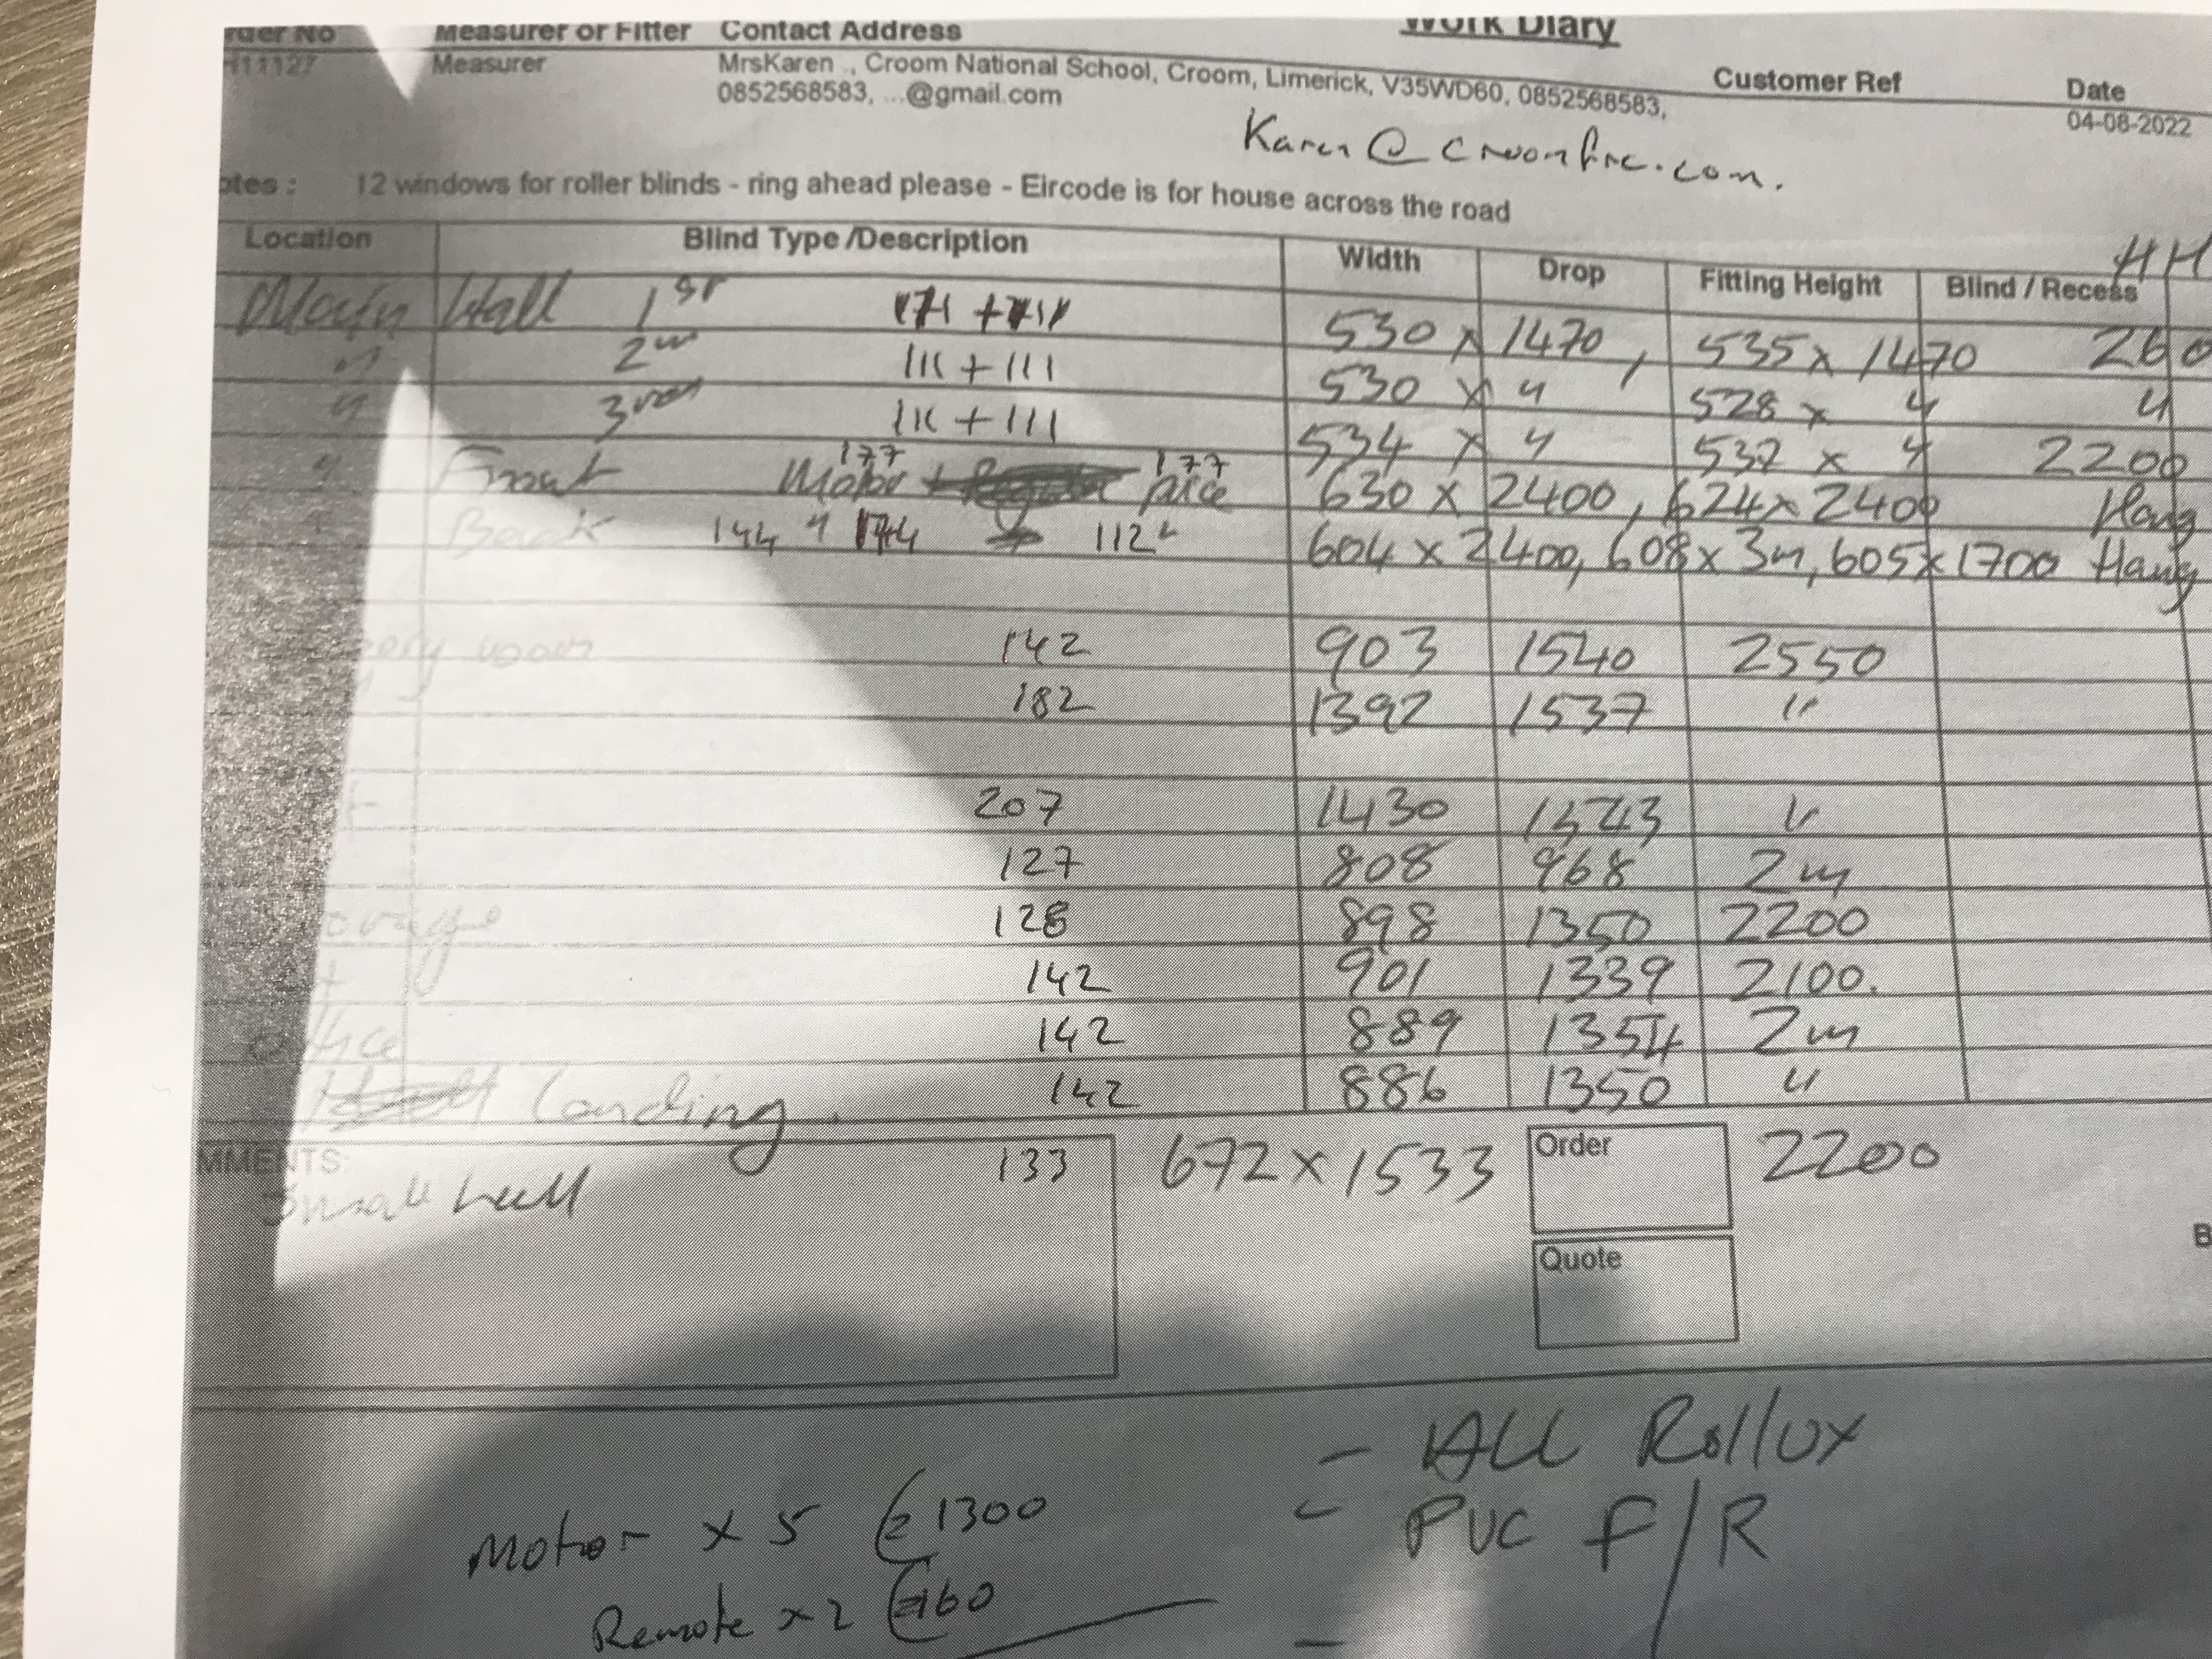 Work Diary
Measurer or Fitter Contact Address Customer Ref Date
Measurer MrsKaren ., Croom National School, Croom, Limerick, V35WD60, 0852568583,
0852568583, ...@gmail.com 04-08-2022
Karen@
12 windows for roller blinds - ring ahead please - Eircode is for house across the road
Location Blind Type /Description Width Drop Fitting Height Blind / Recess
Main Hall 1st 530 x 1470, 535 x 1470 260
" 2nd 111 + 111 530 x " 528 x " "
" 3rd 111 + 111 534 x " 532 x " 2200
177 177
" Front Motor price 630 x 2400, 624 x 2400 Hang
Back 144 " 112 604 x 2400, 608 x 3m, 605 x 1700 Hang
room 142 903 1540 2550
182 1392 1537 "
207 1430 "
127 808 968 2m
128 898 1350 2200
142 901 1339 2100.
142 889 1354 2m
Landing. 142 886 1350 "
133 672 x 1533 Order 2200
Small hall
Quote
- ALL Rollux
Motor x 5 1300 - PVC F/R
Remote x 2 160
-